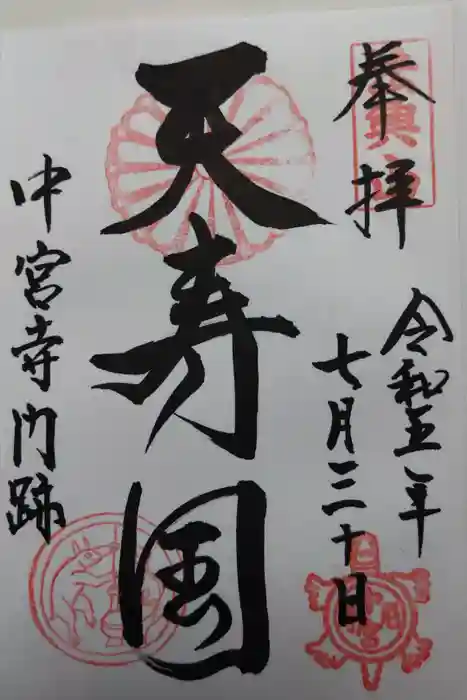 奉拝
令和五年
七月三十日
天寿国
中宮寺門跡